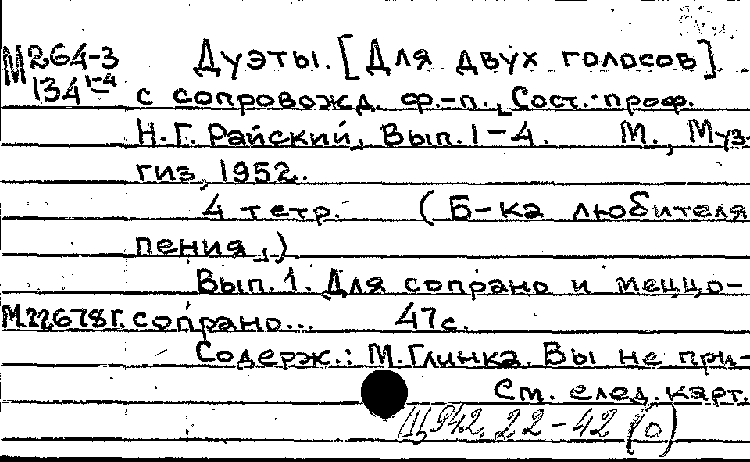 М264-3 Дуэты. [Для двух голосов]
134 1-4 с сопровожд. ф.-п., Сост.: проф.
Н.Г. Райский, Вып. 1-4. М., Муз-
гиз, 1952.
4 тетр. (Б-ка любителя
пения,)
Вып. 1. Для сопрано и меццо-
М22678Г. сопрано... 47с.
Содерж.: М.Глинка. Вы не при-
См. след. карт.
Ц 942. 22-42 (0)